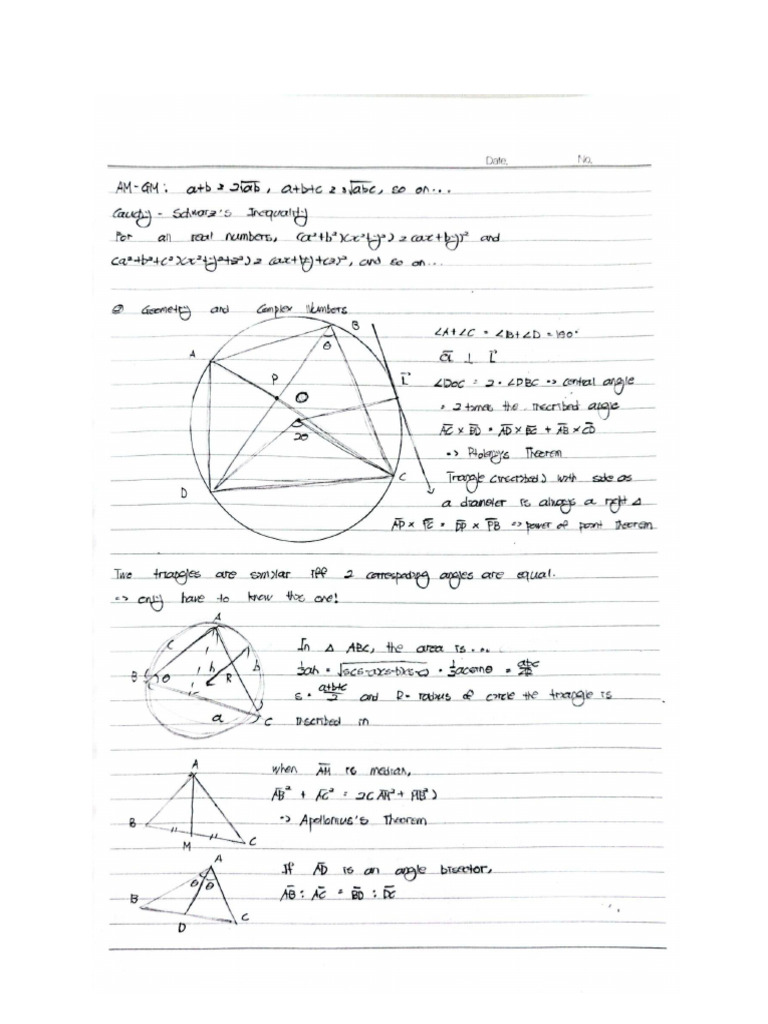 Date, No,
AM-GM: a+b ≥ 2√ab, a+b+c ≥ 3√abc, so on...
Cauchy - Schwarz's Inequality
For all real numbers, (a²+b²)(x²+y²) ≥ (ax+by)² and
(a²+b²+c²)(x²+y²+z²) ≥ (ax+by+cz)², and so on...
Geometry and Complex Numbers
A
B
θ
P
O
2θ
L
D
C
∠A+∠C = ∠B+∠D = 180°
OL ⊥ L
∠DOC = 2 · ∠DBC => central angle
= 2 times the inscribed angle
AC × BD = AD × BC + AB × CD
=> Ptolemy's Theorem
Triangle (inscribed) with side as
a diameter is always a right △
AP × PC = DP × PB => power of point theorem
Two triangles are similar iff 2 corresponding angles are equal.
=> only have to know this one!
A
c
B
θ
h
R
b
a
C
In △ ABC, the area is...
½ah = √s(s-a)(s-b)(s-c) = ½acsinθ = abc/4R
s = a+b+c/2 and R = radius of circle the triangle is
inscribed in
A
B
M
C
when AM is median,
AB² + AC² = 2(AM² + MB²)
=> Apollonius's Theorem
A
θ θ
B
D
C
If AD is an angle bisector,
AB : AC = BD : DC